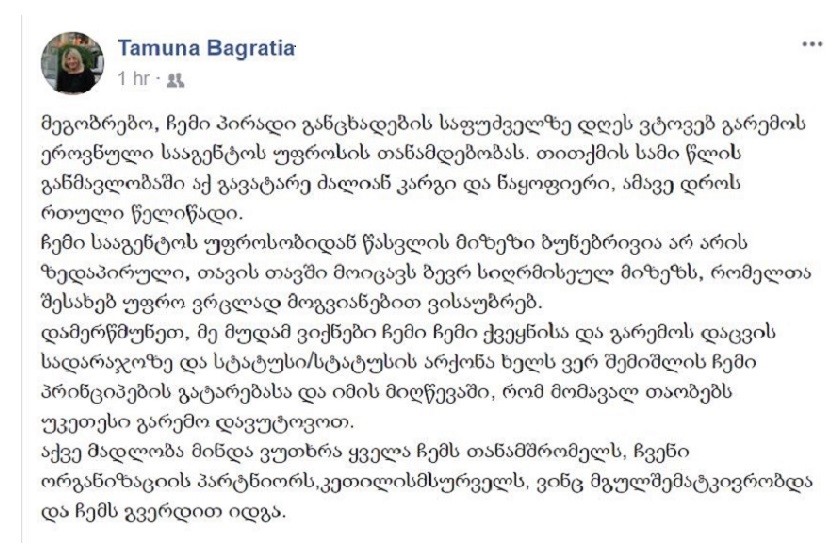 Tamuna Bagratia
1 hr ·
მეგობრებო, ჩემი პირადი განცხადების საფუძველზე დღეს ვტოვებ გარემოს
ეროვნული სააგენტოს უფროსის თანამდებობას. თითქმის სამი წლის
განმავლობაში აქ გავატარე ძალიან კარგი და ნაყოფიერი, ამავე დროს
რთული წელიწადი.
ჩემი სააგენტოს უფროსობიდან წასვლის მიზეზი ბუნებრივია არ არის
ზედაპირული, თავის თავში მოიცავს ბევრ სიღრმისეულ მიზეზს, რომელთა
შესახებ უფრო ვრცლად მოგვიანებით ვისაუბრებ.
დამერწმუნეთ, მე მუდამ ვიქნები ჩემი ჩემი ქვეყნისა და გარემოს დაცვის
სადარაჯოზე და სტატუსი/სტატუსის არქონა ხელს ვერ შემიშლის ჩემი
პრინციპების გატარებასა და იმის მიღწევაში, რომ მომავალ თაობებს
უკეთესი გარემო დავუტოვოთ.
აქვე მადლობა მინდა ვუთხრა ყველა ჩემს თანამშრომელს, ჩვენი
ორგანიზაციის პარტნიორს,კეთილისმსურველს, ვინც მგულშემატკივრობდა
და ჩემს გვერდით იდგა.